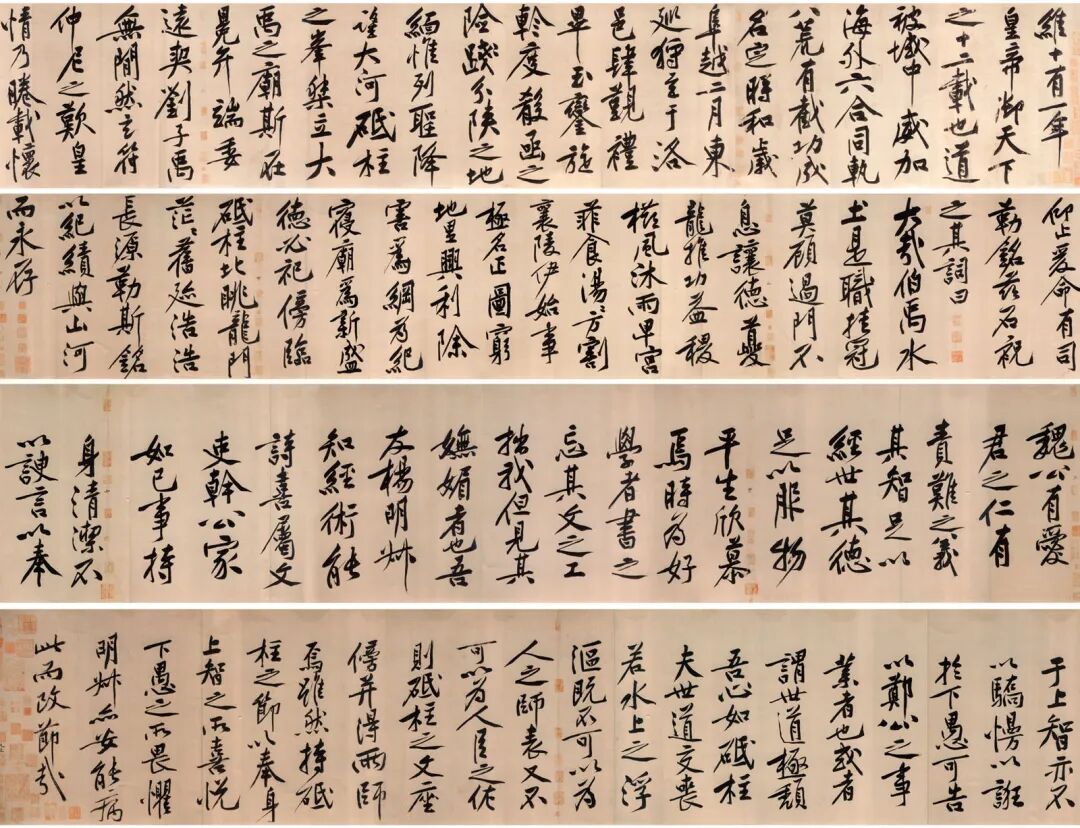 維十有一年
皇帝御天下
之十二載也道
被域中威加
海外六合同軌
八荒有截功成
名定時和歲
阜越二月東
巡狩至于洛
邑肆觀禮
畢玉鑾旋
軫度殽函之
險踐分陝之地
緬惟列聖降
望大河砥柱
之峯桀立大
禹之廟斯在
冕弁端委
遠契劉子禹
無間然之符
仲尼之歎皇
情乃睠載懷
仰止爰命有司
勒銘茲石祝
之其詞曰
大哉伯禹水
土是職挂冠
莫顧過門不
息讓德夔
龍推功益稷
櫛風沐雨卑宮
菲食湯〻方割
襄陵伊始事
極名正圖窮
地里興利除
害爲綱爲紀
寢廟爲新盛
德必祀傍臨
砥柱北眺龍門
茫〻舊跡浩浩
長源勒斯銘
以紀績與山河
而永存
魏公有愛
君之仁有
責難之義
其智足以
經世其德
足以服物
平生欣慕
焉時爲好
學者書之
忘其文之工
拙我但見其
嫵媚者也吾
友楊明叔
知經術能
詩喜屬文
吏幹公家
如己事持
身清潔不
以諛言以奉
于上智亦不
以驕慢以誑
於下愚可告
以鄭公之事
業者也或者
謂世道極頹
吾心如砥柱
夫世道交喪
若水上之浮
漚既不可以爲
人之師表又不
可以爲人臣之佐
則砥柱之文座
傍并得兩師
焉雖然持砥
柱之節以奉身
上智之所喜悅
下愚之所畏懼
明叔亦安能病
此而改節哉